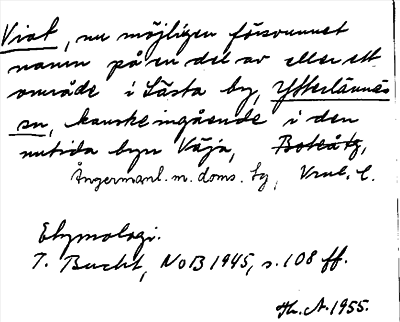 Viat, nu möjligen försvunnet
namn på en del av eller ett
område i Lästa by, Ytterlännäs
sn, kanske ingående i den
nutida byn Väja, Boteåtg,
Ångermanl. m. doms. tg,
Etymologi.
T. Bucht, NoB 1945, s. 108 ff.
Th. A. 1955.